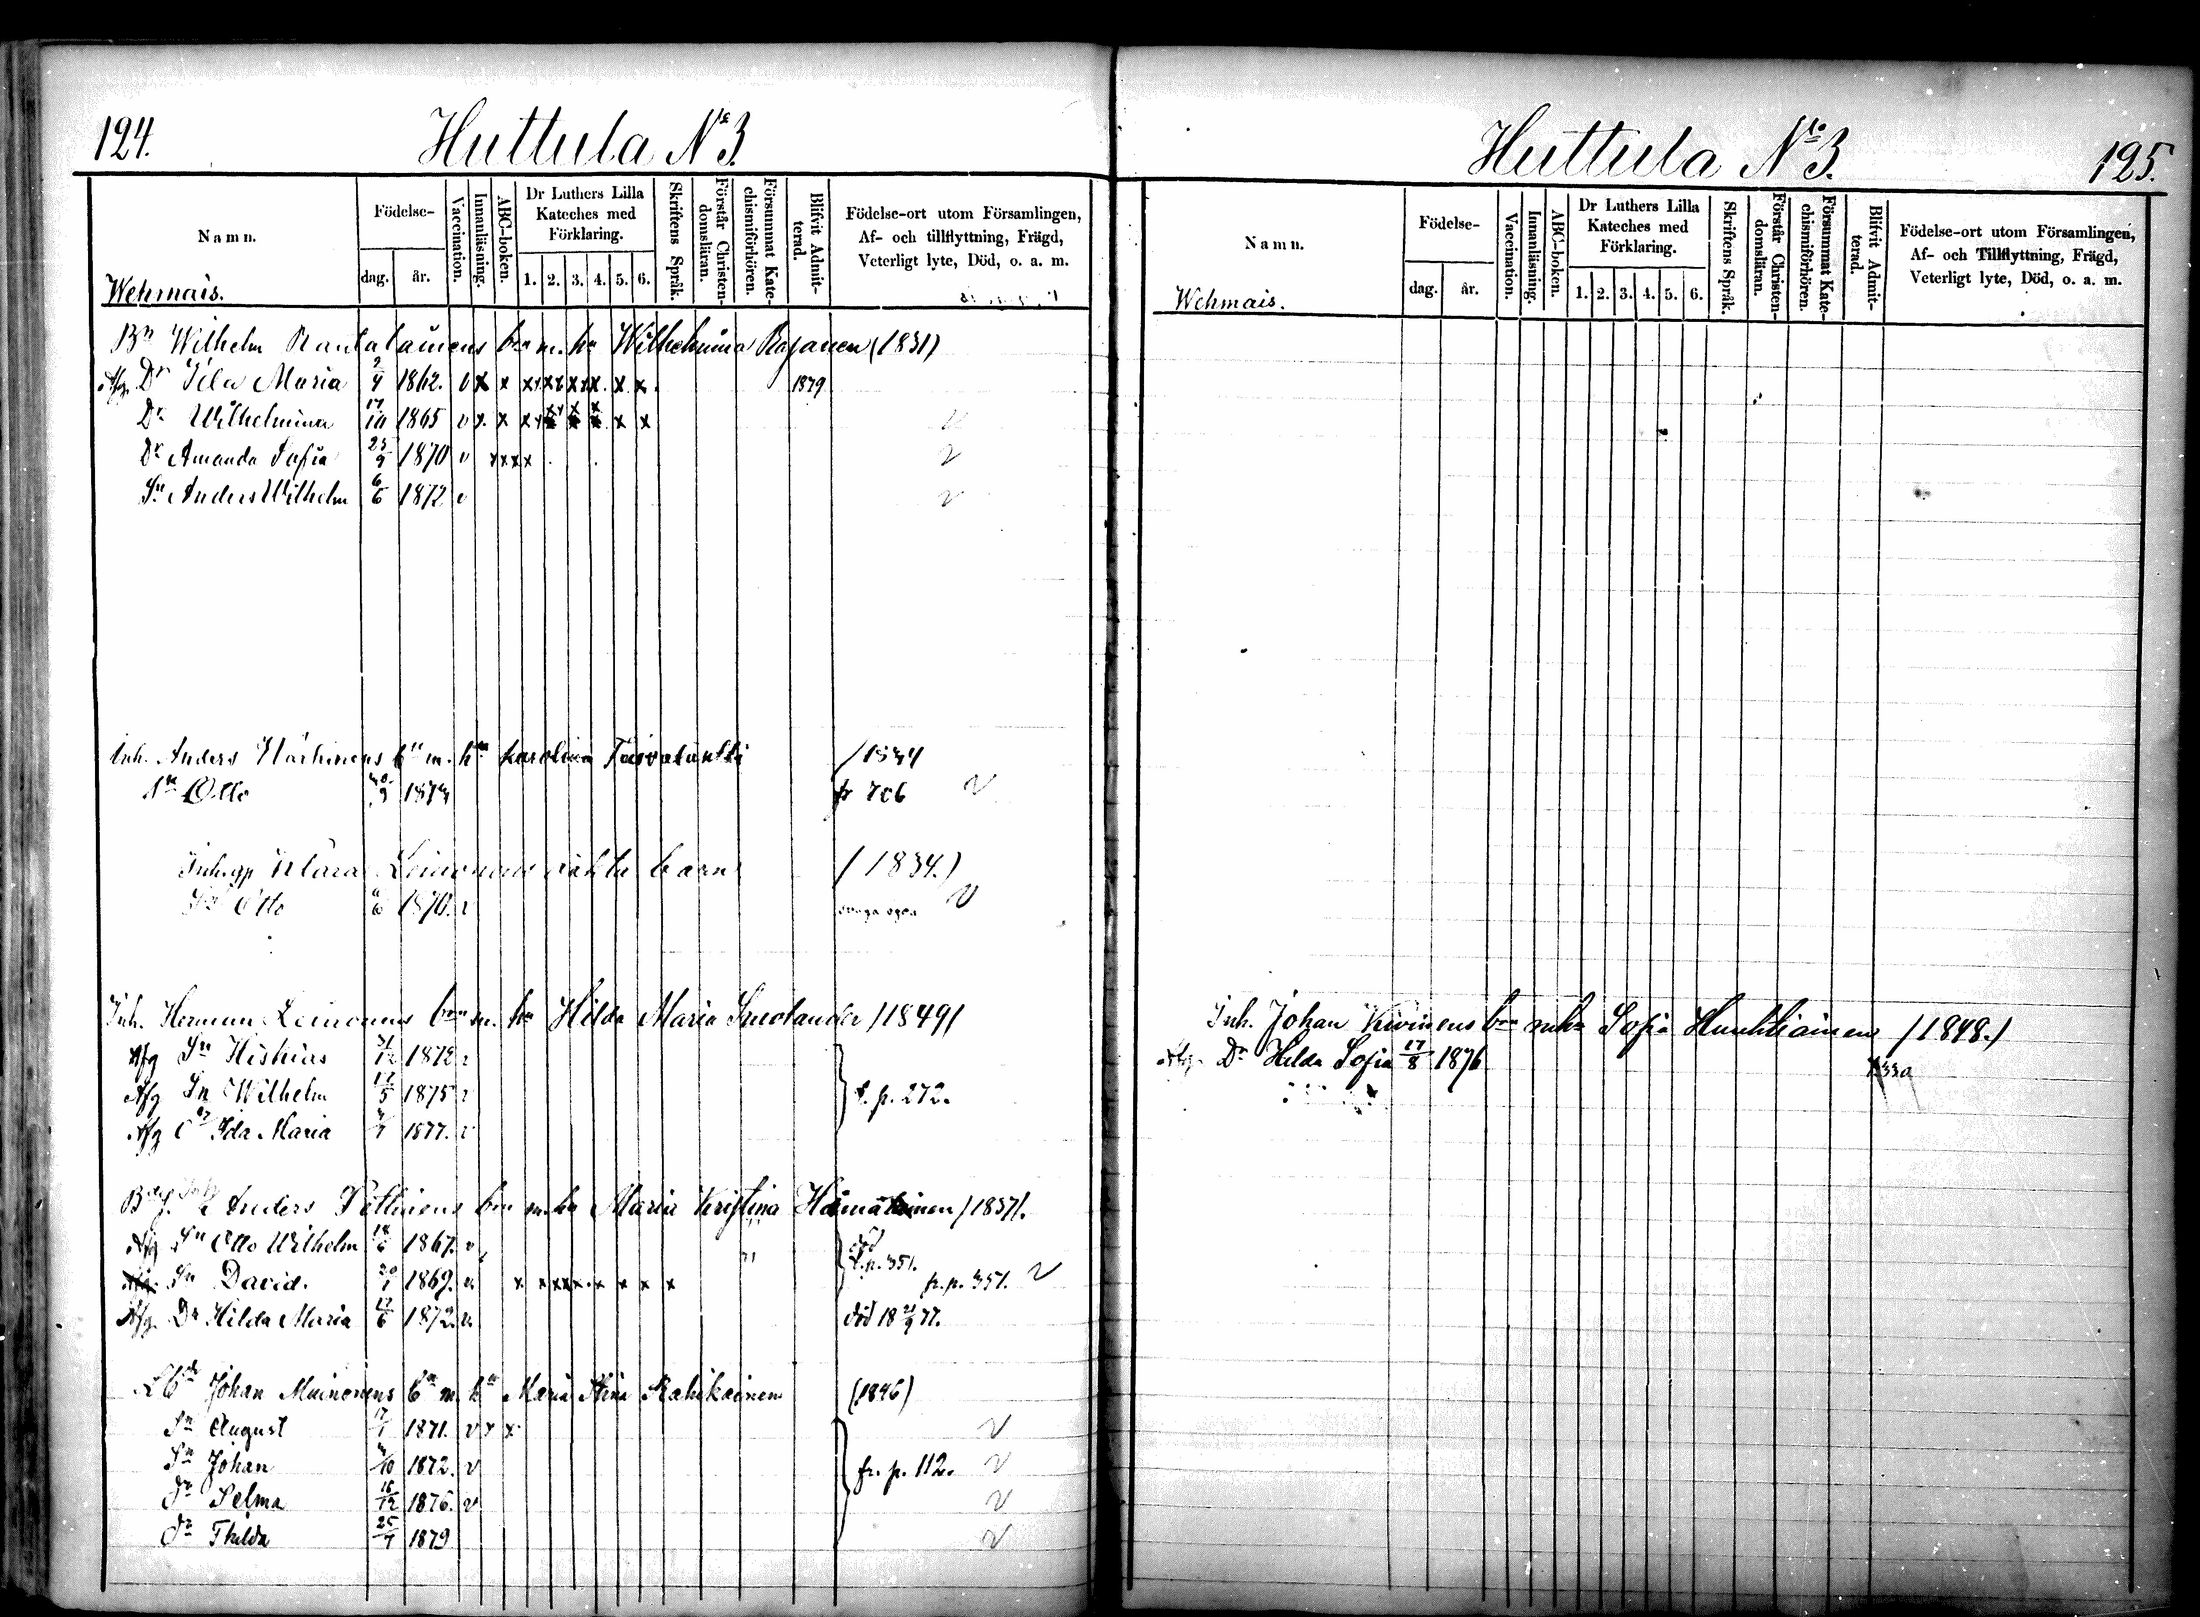 124.
Huttula No 3.
Namn.
Födelse-
dag.
år.
Vaccination.
Innanläsning.
ABC-boken.
Dr Luthers Lilla
Kateches med
Förklaring.
1. 2. 3. 4. 5. 6.
Skriftens Språk.
Förstår Christen-
domsläran.
Försummat Kate-
chismiförhören.
Blifvit Admit-
terad.
Födelse-ort utom Församlingen,
Af- och tillflyttning, Frägd,
Veterligt lyte, Död, o. a. m.
Wehmais.
Bn Wilhelm bn m. hu Wilhelmina (1831)
Afg. Dr Ida Maria 1862. v x x x x x x x x x x 1879
Dr Wilhelmina 17/10 1865 v x x x x x x x x v
Dr Amanda Sofia 23/9 1870 v x x x x v
Sn Anders Wilhelm 6/6 1872 v v
Inh. Anders bn m. hu Karolina (1834
Sn Otto 187 fr 706 v
Klara Leinonens barn (1834.)
Sn Otto 1870. v v
Inh. Herman Leinonens bn m. hu Hilda Maria (1849)
Afg Sn Hiskias 1872 v
Afg Sn Wilhelm 17/5 1875 v t. p. 272.
Afg Dr Ida Maria 1877. v
Anders bn m. hu Maria Kristina (1837).
Afg Sn Otto Wilhelm 18/6 1867. v t. p. 351.
Sn David. 20/1 1869. v x x x x x x x x x fr. p. 351. v
Afg. Dr Hilda Maria 17/6 1872. v. död 18 21/9 77.
Johan Muinonens bn m. hu Maria Stina Kahikainen (1846)
Sn August 17/1 1871. v x x v
Sn Johan 1872. v fr. p. 112. v
Dr Selma 18/12 1876. v v
Dr Thilda 25/4 1879 v
Huttula No 3.
125.
Namn.
Födelse-
dag.
år.
Vaccination.
Innanläsning.
ABC-boken.
Dr Luthers Lilla
Kateches med
Förklaring.
1. 2. 3. 4. 5. 6.
Skriftens Språk.
Förstår Christen-
domsläran.
Försummat Kate-
chismiförhören.
Blifvit Admit-
terad.
Födelse-ort utom Församlingen,
Af- och Tillflyttning, Frägd,
Veterligt lyte, Död, o. a. m.
Wehmais.
Inh. Johan Kivinens bn m hu Sofia (1848.)
Afg. Dr Hilda Sofia 17/8 1876